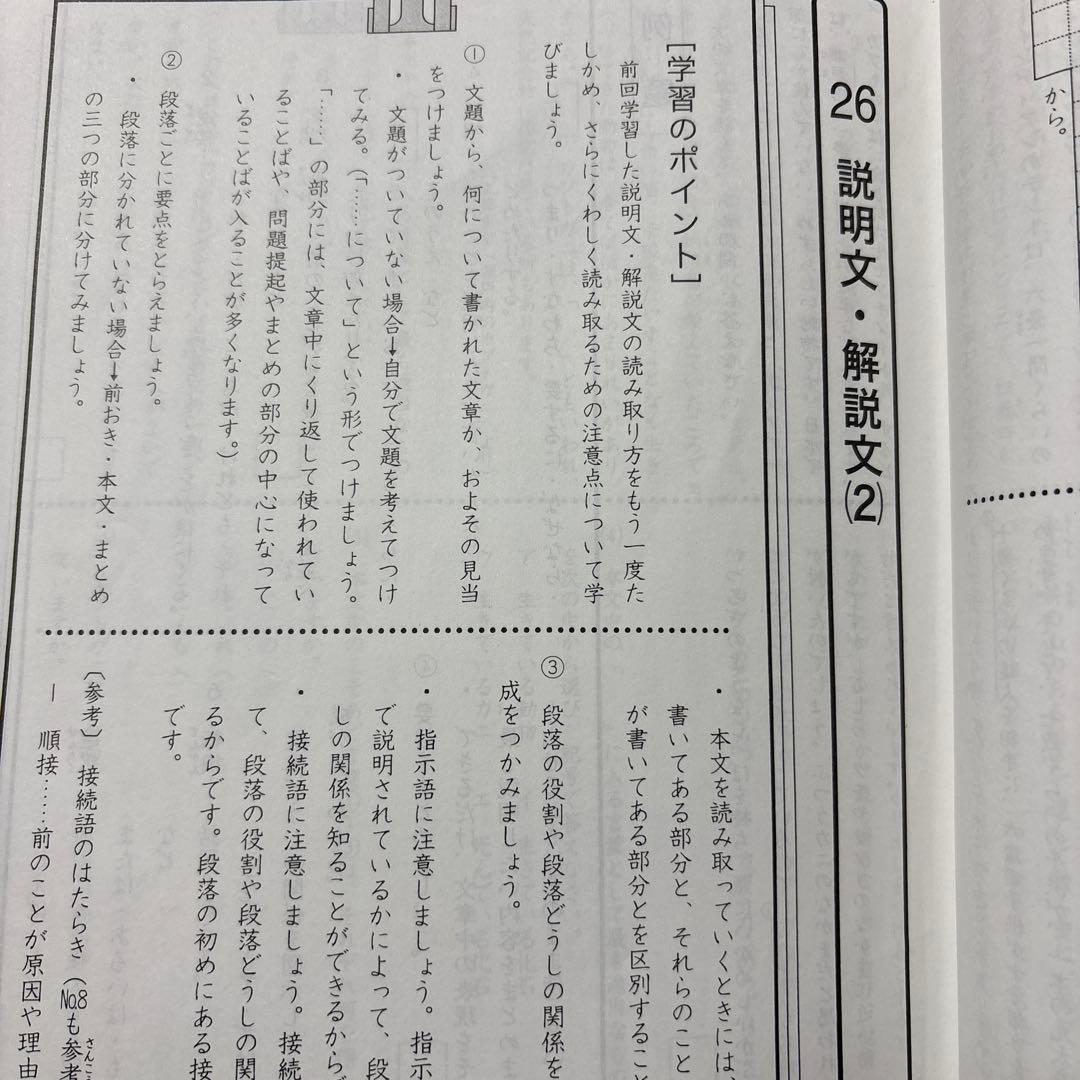 26 説明文・解説文(2)
［学習のポイント］
前回学習した説明文・解説文の読み取り方をもう一度た
しかめ、さらにくわしく読み取るための注意点について学
びましょう。
① 文題から、何について書かれた文章か、およその見当
をつけましょう。
・ 文題がついていない場合→自分で文題を考えてつけ
てみる。（「……について」という形でつけましょう。
「……」の部分には、文章中にくり返して使われてい
ることばや、問題提起やまとめの部分の中心になって
いることばが入ることが多くなります。）
② 段落ごとに要点をとらえましょう。
・ 段落に分かれていない場合→前おき・本文・まとめ
の三つの部分に分けてみましょう。
・ 本文を読み取っていくときには、
書いてある部分と、それらのこと
が書いてある部分とを区別するこ
③ 段落の役割や段落どうしの関係を
成をつかみましょう。
・ 指示語に注意しましょう。指示
で説明されているかによって、段
しの関係を知ることができるから
・ 接続語に注意しましょう。接続
て、段落の役割や段落どうしの関
るからです。段落の初めにある接
です。
〔参考〕 接続語のはたらき（No.8も参考
順接……前のことが原因や理由
から。